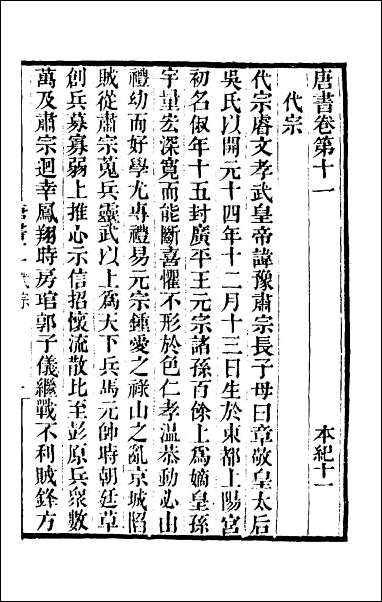 唐書卷第十一 本紀十一
代宗
代宗睿文孝武皇帝諱豫肅宗長子母曰章敬皇太后
吳氏以開元十四年十二月十三日生於東都上陽宮
初名俶年十五封廣平王元宗諸孫百餘上爲嫡皇孫
宇量宏深寬而能斷喜懼不形於色仁孝温恭動必由
禮幼而好學尤專禮易元宗鍾愛之祿山之亂京城陷
賊從肅宗蒐兵靈武以上爲天下兵馬元帥時朝廷草
創兵募寡弱上推心示信招懷流散比至彭原兵衆數
萬及肅宗迴幸鳳翔時房琯郭子儀繼戰不利賊鋒方